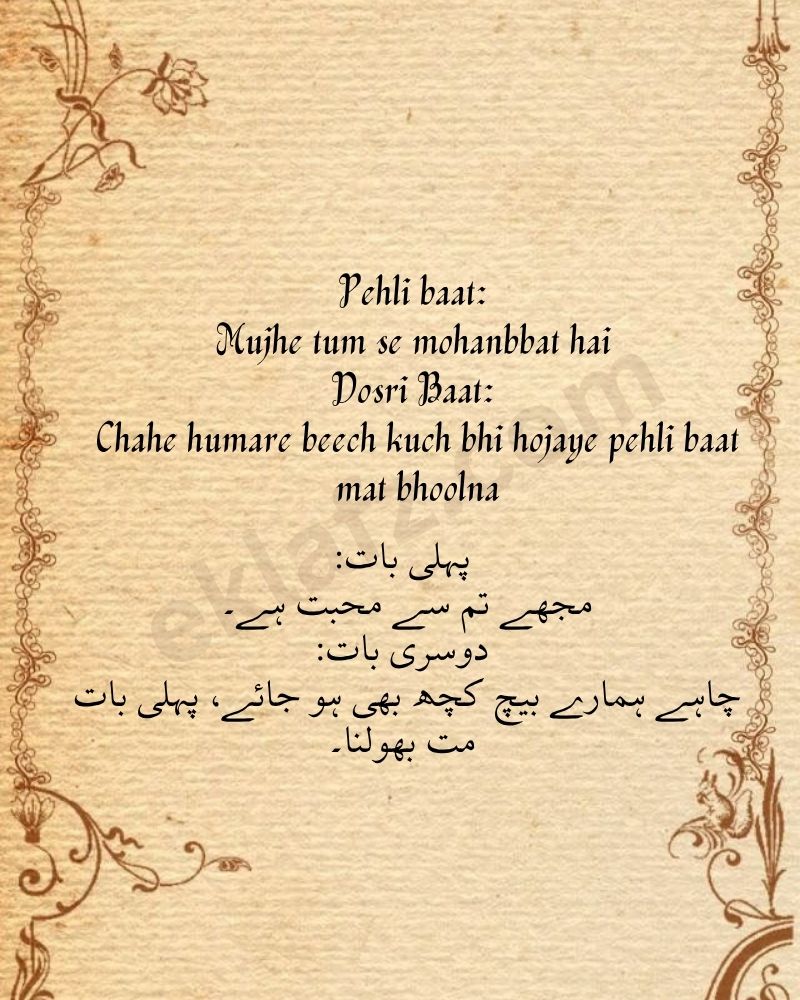 Pehli baat:
Mujhe tum se mohanbbat hai
Dosri Baat:
Chahe humare beech kuch bhi hojaye pehli baat
mat bhoolna
پہلی بات:
مجھے تم سے محبت ہے۔
دوسری بات:
چاہے ہمارے بیچ کچھ بھی ہو جائے، پہلی بات
مت بھولنا۔